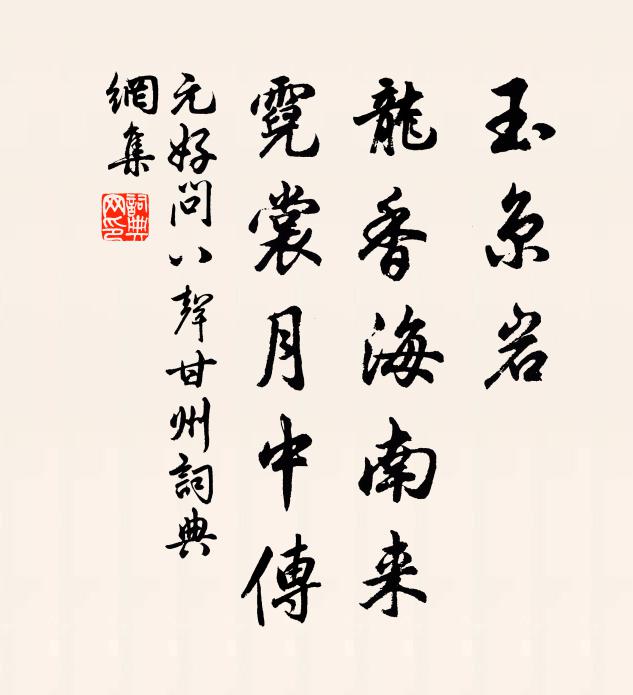 玉京岩
龍香海南来
霓裳月中傳
元好問八聲甘州詞典
網集
詞典網印